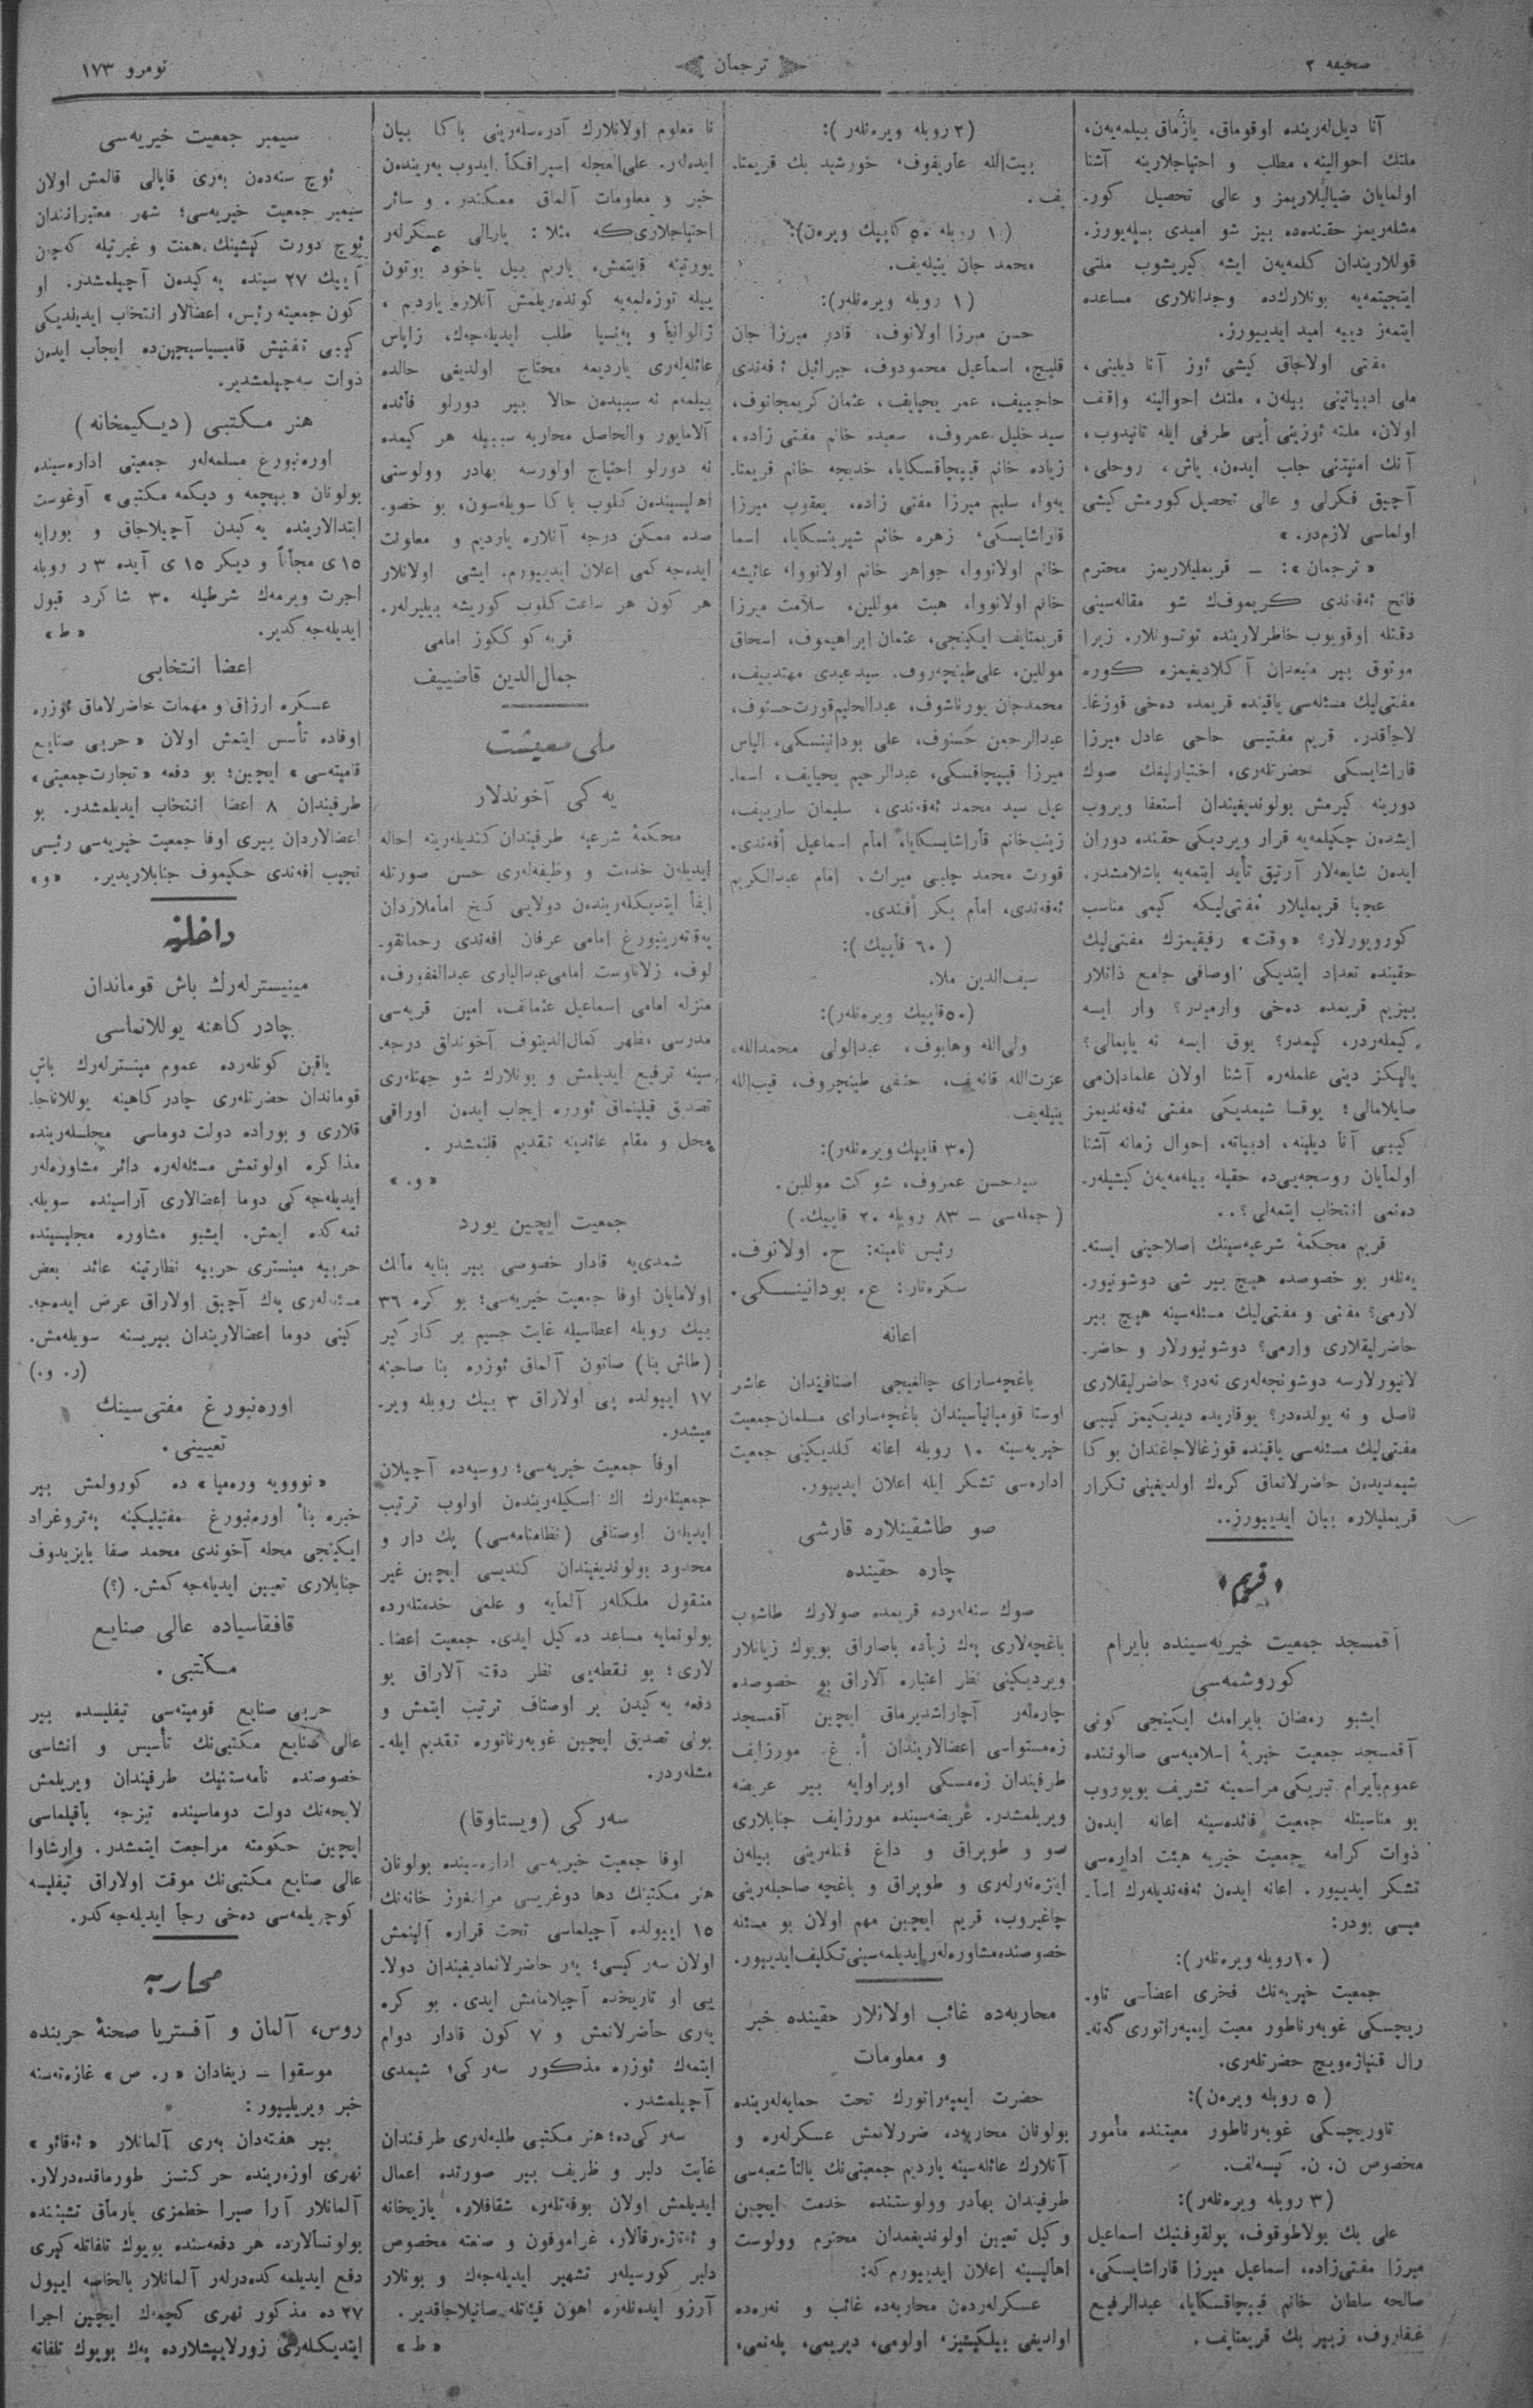 صحیفه ۲
ترجمان
نومرو ۱۷۳
آنا دیل‌لەرینده اوقوماق، یازماق بیلمەیەن،
ملتك احوالینه، مطلب و احتیاجلارینه آشنا
اولمایان ضیالیلاریمز و عالی تحصیل كور‌ـ
مشلەریمز حقنده‌ده بیز شو امیدی بسلەیورز.
قوللاریندان كلمەیەن ایشه كیریشوب ملتی
اینجیتمەیه بونلارك‌ده وجدانلاری مساعده
ایتمەز دییه امید ایدییورز.
مفتی اولاجاق كیشی ئوز آنا دیلینی،
ملی ادبیاتینی بیلەن، ملتك احوالینه واقف
اولان، ملته ئوزینی ایی طرفی ایله تانیدوب،
آنك امنیتنی جلب ایدەن، یاش، روحلی،
آچیق فكرلی و عالی تحصیل كورمش كیشی
اولماسی لازم‌در.»
«ترجمان»: ــ قریملیلاریمز محترم
فاتح ئەفەندی كریموف‌ك شو مقالەسینی
دقتله اوقویوب خاطرلارینده توتسونلار. زیرا
موثوق بیر منبعدان آكلادیغیمزه كوره
مفتی‌لیك مسئلەسی یاقینده قریمده دەخی قوزغا‌ـ
لاجاقدر. قریم مفتیسی حاجی عادل میرزا
قاراشایسكی حضرتلەری، اختیارلیغك صوك
دورینه كیرمش بولوندیغیندان استعفا ویروب
ایشدەن چكیلمەیه قرار ویردیكی حقنده دوران
ایدەن شایعەلار آرتیق تأید ایتمەیه باشلامشدر.
عجبا قریملیلار مفتی‌لیكه كیمی مناسب
كورویورلار؟ «وقت» رفیقیمزك مفتی‌لیك
حقینده تعداد ایتدیكی اوصافی جامع ذاتلار
بیزیم قریمده دەخی وارمیدر؟ وار ایسه
كیملەردر، كیمدر؟ یوق ایسه نه یاپمالی؟
یالیكز دینی علملەره آشنا اولان علمادان‌می
صایلامالی؛ یوقسا شیمدیكی مفتی ئەفەندیمز
كیبی آنا دیلینه، ادبیاته، احوال زمانه آشنا
اولمایان روسجەیی‌ده حقیله بیلەمەیەن كیشیلەر‌ـ
دەنمی انتخاب ایتمەلی؟..
قریم محكمۀ شرعیەسینك اصلاحینی ایسته‌ـ
یەنلەر بو خصوصده هیچ بیر شی دوشونیور‌ـ
لارمی؟ مفتی و مفتی‌لیك مسئلەسینه هیچ بیر
حاضرلیقلاری وارمی؟ دوشونیورلار و حاضر‌ـ
لانیورلارسه دوشونجەلەری نەدر؟ حاضرلیقلاری
ناصل و نه یولده‌در؟ یوقاریده دیدیكیمز كیبی
مفتی‌لیك مسئلەسی یاقینده قوزغالاجاغندان بوكا
شیمدیدەن حاضرلانماق كرەك اولدیغینی تكرار
قریملیلاره بیان ایدییورز..
قریم
آقمسجد جمعیت خیریەسینده بایرام
كوروشمەسی
ایشبو رمضان بایرامك ایكینجی كونی
آقمسجد جمعیت خیریۀ اسلامیەسی صالوننده
عموم بایرام تبریكی مراسمینه تشریف بویوروب
بو مناسبتله جمعیت فائدەسینه اعانه ایدەن
ذوات كرامه جمعیت خیریه هیئت ادارەسی
تشكر ایدییور. اعانه ایدەن ئەفەندیلەرك اسا‌ـ
میسی بودر:
(۱۰ روبله ویرەنلەر):
جمعیت خیریەنك فخری اعضاسی تاو‌ـ
ریچسكی غوبەرناطور معیت ایمپەراتوری گەنە‌ـ
رال قنیاژەویچ حضرتلەری.
(۵ روبله ویرەن):
تاوریچسكی غوبەرناطور معیتنده مأمور
مخصوص ن. ن. كیسەلف.
(۳ روبله ویرەنلەر):
علی بك بولاطوقوف، پولقوفنیك اسماعیل
میرزا مفتی‌زاده، اسماعیل میرزا قاراشایسكی،
صالحه سلطان خانم قیپچاقسكایا، عبدالرفیع
غفاروف، زبیر بك قریمتایف.
(۲ روبله ویرەنلەر):
بیت‌الله عاریفوف، خورشید بك قریمتا‌ـ
یف.
(۱ روبله ۵۰ كاپیك ویرەن):
محمد جان ینیلەیف.
(۱ روبله ویرەنلەر):
حسن میرزا اولانوف، قادر میرزا جان
قلیچ، اسماعیل محمودوف، جبرائیل ئەفەندی
حاجییف، عمر یحیایف، عثمان كریمجانوف،
سید خلیل عمروف، سعیده خانم مفتی زاده،
زیاده خانم قیپچاقسكایا، خدیجه خانم قریمتا‌ـ
یەوا، سلیم میرزا مفتی زاده، یعقوب میرزا
قاراشایسكی، زهره خانم شیرینسكایا، اسما
خانم اولانووا، جواهر خانم اولانووا، عائیشه
خانم اولانووا، هبت موللین، سلامت میرزا
قریمتایف ایكینجی، عثمان ابراهیموف، اسحاق
موللین، علی طینچەروف. سید عبدی مهتدییف،
محمدجان بورناشوف، عبدالحلیم قورت‌حسنوف،
عبدالرحمن حسنوف، علی بودانینسكی، الیاس
میرزا قیپچاقسكی، عبدالرحیم یحیایف، اسما‌ـ
عیل سید محمد ئەفەندی، سلیمان سارییف،
زینب خانم قاراشایسكایا، امام اسماعیل أفەندی.
قورت محمد چلبی میراث، امام عبدالكریم
ئەفەندی، امام بكر أفندی.
(۶۰ قاپیك):
سیف‌الدین ملا.
(۵۰ قاپیك ویرەنلەر):
ولی‌الله وهابوف، عبدالولی محمدالله،
عزت‌الله قانەیف، حنفی طینچروف، قیب‌الله
ینیلەیف.
(۳۰ قاپیك ویرەنلەر):
سیدحسن عمروف، شوكت موللین.
(جملەسی ــ ۸۳ روبله ۲۰ قاپیك.)
رئیس نامینه: ح. اولانوف.
سكرەتار: ع. بودانینسكی.
اعانه
باغچەسارای چالغیجی اصنافیندان عاشر
اوستا قومپانیاسیندان باغچەسارای مسلمان جمعیت
خیریەسینه ۱۰ روبله اعانه كلدیكینی جمعیت
ادارەسی تشكر ایله اعلان ایدییور.
صو طاشقینلاره قارشی
چاره حقینده
صوك سنەلەرده قریمده صولارك طاشوب
باغچەلاری پەك زیاده باصاراق بویوك زیانلار
ویردیكینی نظر اعتباره آلاراق بو خصوصده
چارەلەر آچاراشدیرماق ایچین آقمسجد
زەمستواسی اعضالاریندان أ. غ. مورزایف
طرفیندان زەمسكی اوپراوایه بیر عریضه
ویریلمشدر. عریضەسینده مورزایف جنابلاری
صو و طوپراق و داغ فنلەرینی بیلەن
اینژەنەرلەری و طوپراق و باغچه صاحبلەرینی
چاغیروب، قریم ایچین مهم اولان بو مسئله
خصوصنده مشاورەلەر ایدیلمەسینی تكلیف ایدییور.
محاربەده غائب اولانلار حقینده خبر
و معلومات
حضرت ایمپەراتورك تحت حمایەلەرینده
بولونان محاربەده ضررلانمش عسكرلەره و
آنلارك عائلەسینه یاردیم جمعیتی‌نك یالتا شعبەسی
طرفیندان بهادر وولوستنده خدمت ایچین
وكیل تعیین اولوندیغمدان محترم وولوست
اهالیسینه اعلان ایدییورم كه:
عسكرلەردەن محاربەده غائب و نەرەده
اولدیغی بیلكیشیز، اولومی، دیریمی، یلەنمی،
نا معلوم اولانلارك آدرەسلەرینی باكا بیان
ایدەلەر. علی‌العجله اسپرافكا ایدوب یەریندەن
خبر و معلومات آلماق ممكندر. و سائر
احتیاجلاری كه مثلا: یارالی عسكرلەر
یورتینه قایتمش، یاریم ییل یاخود بوتون
ییله توزەلمەیه كوندەریلمش آنلاره یاردیم،
ژالوانیا و پەنسیا طلب ایدیلەجەك، زاپاس
عائلەلەری یاردیمه محتاج اولدیغی حالده
بیلمەم نه سببدەن حالا بیر دورلو فائده
آلامایور والحاصل محاربه سببیله هر كیمده
نه دورلو احتیاج اولورسه بهادر وولوستی
اهلیسیندەن كلوب باكا سویلەسون، بو خصو‌ـ
صده ممكن درجه آنلاره یاردیم و معاونت
ایدەجەكمی اعلان ایدییورم. ایشی اولانلار
هر كون هر ساعت كلوب كوریشه بیلیرلەر.
قریه كوككوز امامی
جمال‌الدین قاضییف
ملی معیشت
یەكی آخوندلار
محكمۀ شرعیه طرفیندان كندیلەرینه احاله
ایدیلەن خدمت و وظیفەلەری حسن صورتله
ایفأ ایتدیكلەریندەن دولایی كنخ اماملازدان
یەقتەرینبورغ امامی عرفان افەندی رحمانقو‌ـ
لوف، زلاتاوست امامی عبدالباری عبدالغفورف،
منزله امامی اسماعیل عثمانف، امین قریەسی
مدرسی مظهر كمال‌الدینوف آخوندلق درجه‌ـ
سینه ترفیع ایدیلمش و بونلارك شو جهتلەری
تصدیق قیلینماق ئوزره ایجاب ایدەن اوراقی
محل و مقام عائدینه تقدیم قلنمشدر.
«و.»
جمعیت ایچین یورد
شمدی‌یه قادار خصوصی بیر بنایه مالك
اولامایان اوفا جمعیت خیریەسی؛ بو كره ۳۶
بیك روبله اعطاسیله غایت جسیم بر كارگیر
(طاش بنا) صاتون آلماق ئوزره بنا صاحبنه
۱۷ اییولده پی اولاراق ۳ بیك روبله ویر‌ـ
میشدر.
اوفا جمعیت خیریەسی؛ روسیەده آچیلان
جمعیتلەرك اك اسكیلەریندەن اولوب ترتیب
ایدیلەن اوصتافی (نظامنامەسی) پك دار و
محدود بولوندیغیندان كندیسی ایچین غیر
منقول ملكلەر آلمایه و علمی خدمتلەرده
بولونمایه مساعد دەكیل ایدی. جمعیت اعضا‌ـ
لاری؛ بو نقطەیی نظر دقته آلاراق بو
دفعه یەكیدن بر اوصتاف ترتیب ایتمش و
بونی تصدیق ایچین غوبەرناتوره تقدیم ایله‌ـ
مشلەردر.
سەرگی (ویستاوقا)
اوفا جمعیت خیریەسی ادارەسینده بولونان
هنر مكتبنك دها دوغریسی مرانغوز خانەنك
۱۵ اییولده آچیلماسی تحت قراره آلینمش
اولان سەرگیسی؛ یەر حاضرلانمادیغیندان دولا‌ـ
یی او تاریخده آچیلامامش ایدی. بو كره
یەری حاضرلانمش و ۷ كون قادار دوام
ایتمەك ئوزره مذكور سەرگی؛ شیمدی
آچیلمشدر.
سەرگی‌ده؛ هنر مكتبی طلبەلەری طرفندان
غایت دلبر و ظریف بیر صورتده اعمال
ایدیلمش اولان بوفەتلەر، شقافلار، یازیخانه
و ئەتاژەرقالار، غراموفون و صنعته مخصوص
دلبر كورسیلەر تشهیر ایدیلەجەك و بونلار
آرزو ایدەنلەره اهون فیئاتله صاتیلاجاقدیر.
«ط»
سیمبر جمعیت خیریەسی
ئوچ سنەدەن بەری قاپالی قالمش اولان
سیمبر جمعیت خیریەسی؛ شهر معتبرانندان
ئوچ دورت كیشینك همت و غیرتیله كەچن
آییك ۲۷ سینده یەكیدەن آچیلمشدر. او
كون جمعیته رئیس، اعضالار انتخاب ایدیلدیكی
كیبی تفتیش قامیسیاسیچین‌ده ایجاب ایدەن
ذوات سەچیلمشدیر.
هنر مكتبی (دیكیمخانه)
اورەنبورغ مسلمەلەر جمعیتی ادارەسینده
بولونان «بیچمه و دیكمه مكتبی» آوغوست
ابتدالارینده یەكیدن آچیلاجاق و بورایه
۱۵ ی مجاناً و دیكر ۱۵ ی آیده ۳ ر روبله
اجرت ویرمەك شرطیله ۳۰ شاكرد قبول
ایدیلەجەكدیر. «ط»
اعضا انتخابی
عسكره ارزاق و مهمات حاضرلاماق ئوزره
اوفاده تأسس ایتمش اولان «حربی صنایع
قامیتەسی» ایچین؛ بو دفعه «تجارت جمعیتی»
طرفیندان ۸ اعضا انتخاب ایدیلمشدر. بو
اعضالاردان بیری اوفا جمعیت خیریەسی رئیسی
نجیب افەندی حكیموف جنابلاریدیر. «و»
داخلیه
مینیسترلەرك باش قوماندان
چادرگاهنه یوللانماسی
یاقین كونلەرده عموم مینسترلەرك باش
قوماندان حضرتلەری چادرگاهینه یوللاناجا‌ـ
قلاری و بوراده دولت دوماسی مجلسلەرینده
مذاكره اولونمش مسئلەلەره دائر مشاورەلەر
ایدیلەجەكی دوما اعضالاری آراسینده سویله‌ـ
نمەكده ایمش. ایشبو مشاوره مجلیسینده
حربیه مینستری حربیه نظارتینه عائد بعض
مسئلەلەری پەك آچیق اولاراق عرض ایدەجە‌ـ
كینی دوما اعضالاریندان بیریسنه سویلەمش.
(ر. و.)
اورەنبورغ مفتی‌سینك
تعیینی.
«نوویه ورەمیا» ده كورولمش بیر
خبره بناً اورەنبورغ مفتیلیكینه پەتروغراد
ایكینجی محله آخوندی محمد صفا بایزیدوف
جنابلاری تعیین ایدیلەجەكمش. (؟)
قافقاسیاده عالی صنایع
مكتبی.
حربی صنایع قومیتەسی تیفلیسده بیر
عالی صنایع مكتبی‌نك تأسیس و انشاسی
خصوصنده نامەستنیك طرفیندان ویریلمش
لایحەنك دولت دوماسینده تیزجه باقیلماسی
ایچین حكومته مراجعت ایتمشدر. وارشاوا
عالی صنایع مكتبی‌نك موقت اولاراق تیفلیسه
كوچریلمەسی دەخی رجأ ایدیلەجەكدر.
محاربه
روس، آلمان و آفستریا صحنۀ حربنده
موسقوا ــ ریغادان «ر. ص» غازەتەسنه
خبر ویریلییور:
بیر هفتەدان بەری آلمانلار «ئەقائو»
نهری اوزەرینده حركتسز طورماقده‌درلار.
آلمانلار آرا صیرا خطمزی یارماق تشبثنده
بولونسالارده هر دفعەسنده بویوك تلفاتله كیری
دفع ایدیلمەكده‌درلەر آلمانلار بالخاصه اییول
۲۷ ده مذكور نهری كچمەك ایچین اجرا
ایتدیكلەری زورلاییشلارده پەك بویوك تلفاته